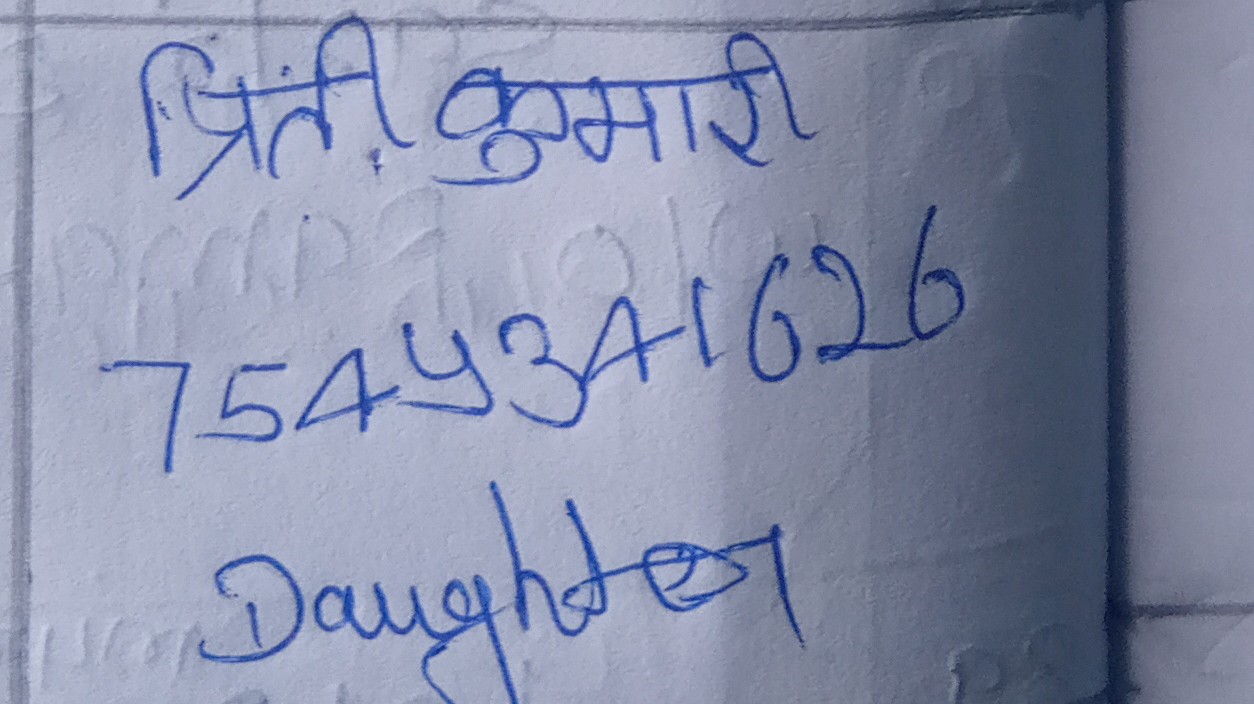 प्रिती कुमारी
7544341626
Daughter